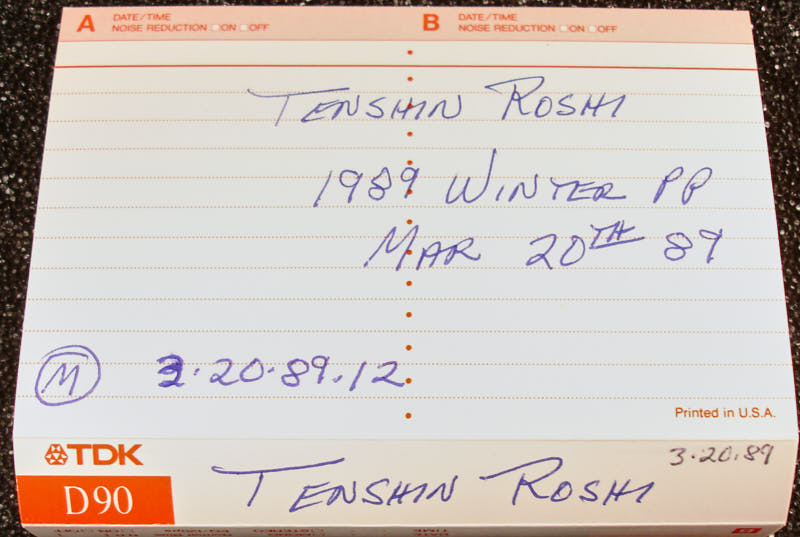 A DATE/TIME B DATE/TIME
NOISE REDUCTION □ON □OFF NOISE REDUCTION □ON □OFF
TENSHIN ROSHI
1989 WINTER PP
MAR 20TH 89
M 3.20.89.12
Printed in U.S.A.
TDK 3.20.89
D90 TENSHIN ROSHI